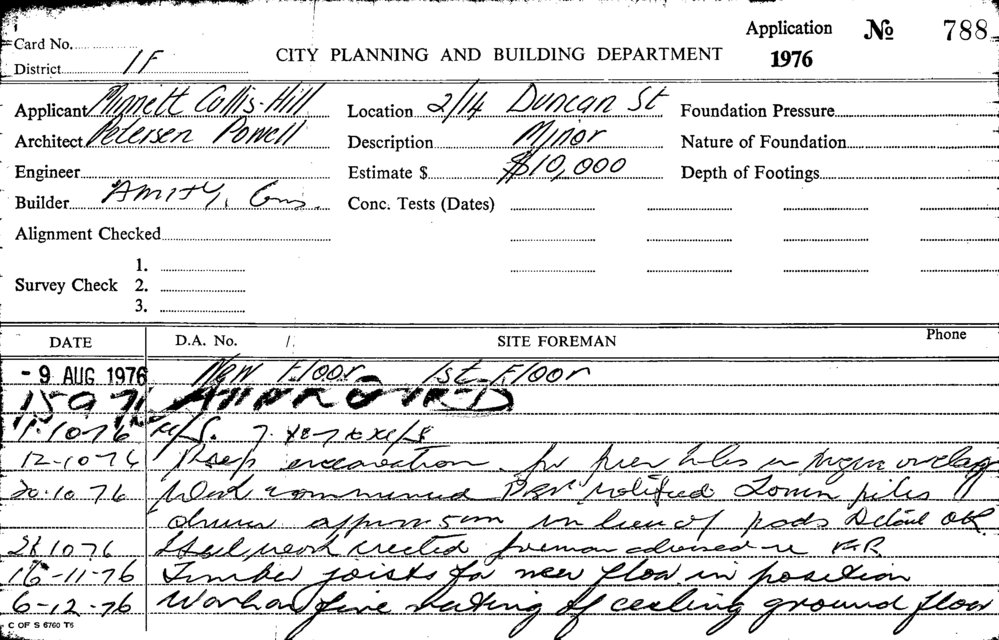 Application No 788
Card No.
District 1F
CITY PLANNING AND BUILDING DEPARTMENT
1976
Applicant Minnett Cullis-Hill Location 2/14 Duncan St Foundation Pressure
Architect Petersen Powell Description Minor Nature of Foundation
Engineer Estimate $ $10,000 Depth of Footings
Builder Amity, Cons. Conc. Tests (Dates)
Alignment Checked
1.
Survey Check 2.
3.
DATE D.A. No. 1. SITE FOREMAN Phone
- 9 AUG 1976 New Floor 1st Floor
15 9 76 APPROVED
1.10 76 W/S.
12-10 76 excavation for pier holes in
20.10 76 Work commenced notified piles
approx 5m in lieu of pads Detail OK
28 10 76 Steelwork erected foreman advised re
16-11-76 Timber joists for new floor in position
6-12-76 Work on fire rating of ceiling ground floor
C OF S 6760 T5